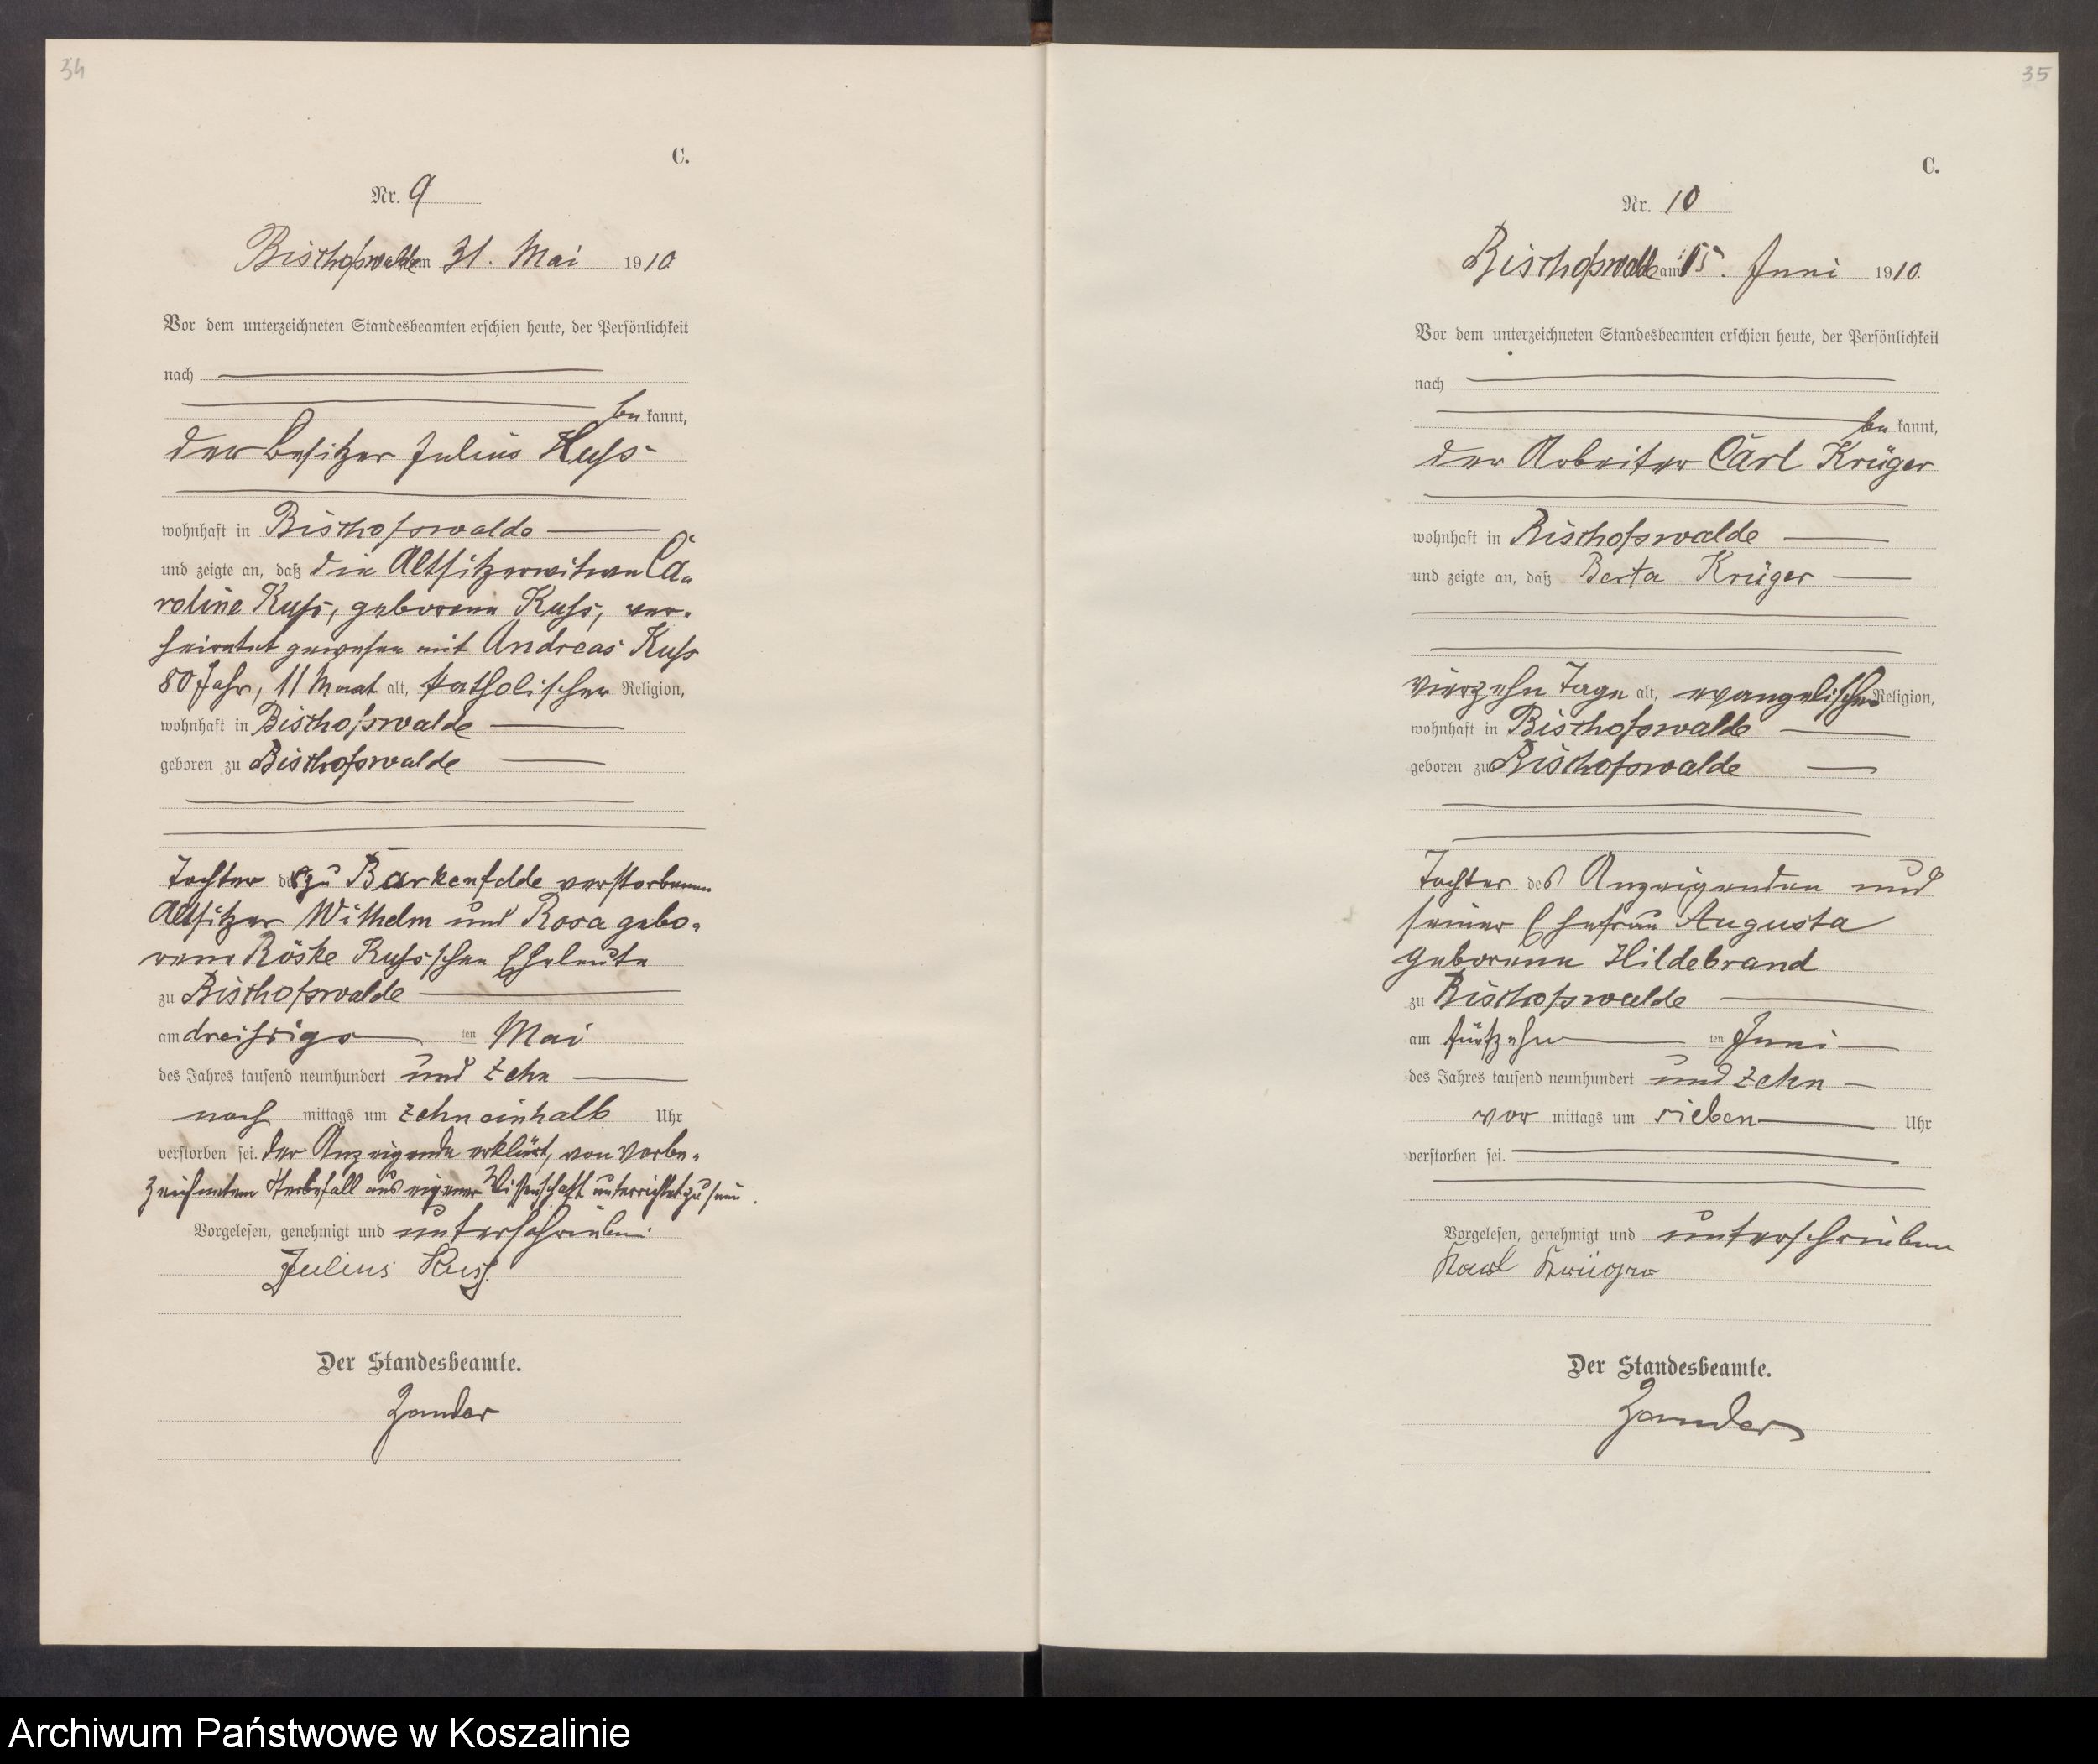 34
C.
Nr. 9
Bischofswalde am 31. Mai 1910
Vor dem unterzeichneten Standesbeamten erschien heute, der Persönlichkeit
nach
be kannt,
der Besitzer Julius Kuss
wohnhaft in Bischofswalde
und zeigte an, daß die Altsitzerwitwe Ca-
roline Kuss, geborene Kuss, ver-
heiratet gewesen mit Andreas Kuss
80 Jahr, 11 Monat alt, katholischer Religion,
wohnhaft in Bischofswalde
geboren zu Bischofswalde
Tochter der zu Barkenfelde verstorbenen
Altsitzer Wilhelm und Rosa gebo-
rene Röske Kuss'schen Eheleute
zu Bischofswalde
am dreißigs ten Mai
des Jahres tausend neunhundert und zehn
nach mittags um zehneinhalb Uhr
verstorben sei. Der Anzeigende erklärt, von vorbe-
zeichnetem Sterbefall aus eigener Wissenschaft unterrichtet zu sein.
Vorgelesen, genehmigt und unterschrieben
Julius Kuss.
Der Standesbeamte.
Zander
35
C.
Nr. 10
Bischofswalde am 15. Juni 1910.
Vor dem unterzeichneten Standesbeamten erschien heute, der Persönlichkeit
nach
be kannt,
der Arbeiter Carl Krüger
wohnhaft in Bischofswalde
und zeigte an, daß Berta Krüger
vierzehn Tage alt, evangelischer Religion,
wohnhaft in Bischofswalde
geboren zu Bischofswalde
Tochter des Anzeigenden und
seiner Ehefrau Augusta
geborene Hildebrand
zu Bischofswalde
am fünfzehn ten Juni
des Jahres tausend neunhundert und zehn
vor mittags um sieben Uhr
verstorben sei.
Vorgelesen, genehmigt und unterschrieben
Karl Krüger
Der Standesbeamte.
Zander
Archiwum Państwowe w Koszalinie